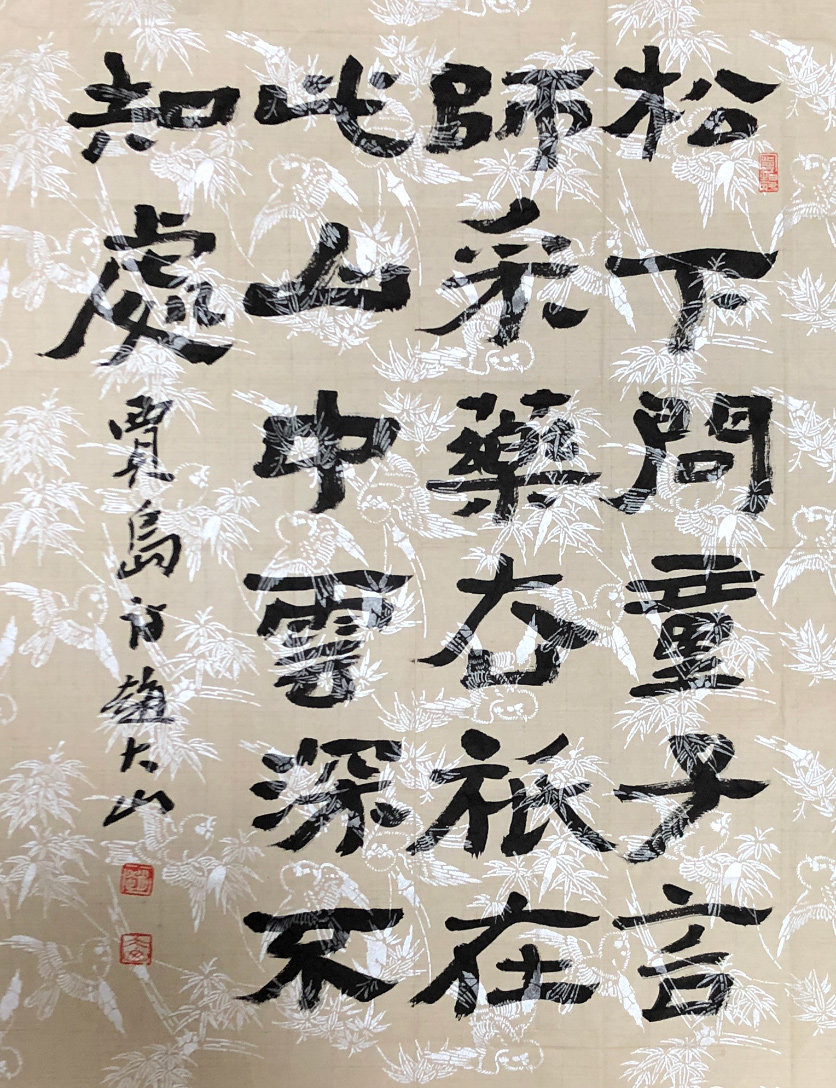 松下問童子言
師采藥去祇在
此山中雲深不
知處
賈島詩趙大山